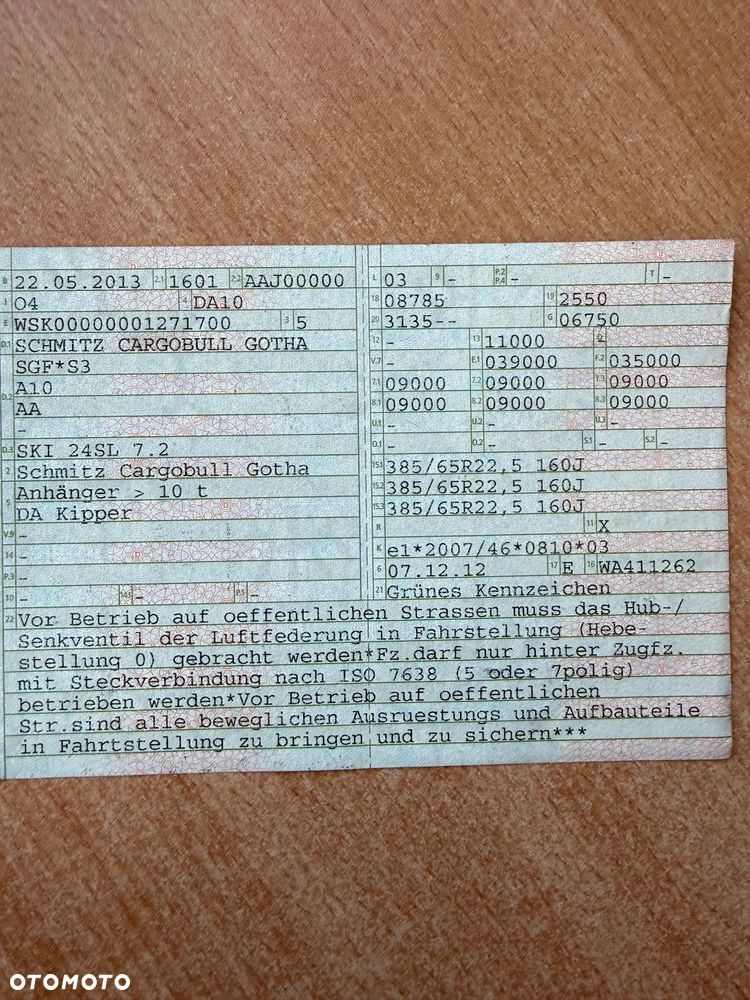 B 22.05.2013 2.1 1601 2.2 AAJ00000
J O4 4 DA10
E WSK00000001271700 3 5
D.1 SCHMITZ CARGOBULL GOTHA
SGF*S3
D.2 A10
AA
-
D.3 SKI 24SL 7.2
2 Schmitz Cargobull Gotha
5 Anhänger > 10 t
DA Kipper
V.9 -
14 -
P.3 -
10 - 14.1 - P.1 -
L 03 9 - P.2 P.4 - T -
18 08785 19 2550
20 3135-- G 06750
12 - 13 11000 Q -
V.7 - F.1 039000 F.2 035000
7.1 09000 7.2 09000 7.3 09000
8.1 09000 8.2 09000 8.3 09000
U.1 - U.2 - U.3 -
O.1 - O.2 - S.1 - S.2 -
15.1 385/65R22,5 160J
15.2 385/65R22,5 160J
15.3 385/65R22,5 160J
R 11 X
K e1*2007/46*0810*03
6 07.12.12 17 E 16 WA411262
21 Grünes Kennzeichen
22 Vor Betrieb auf oeffentlichen Strassen muss das Hub-/
Senkventil der Luftfederung in Fahrstellung (Hebe-
stellung 0) gebracht werden*Fz.darf nur hinter Zugfz.
mit Steckverbindung nach ISO 7638 (5 oder 7polig)
betrieben werden*Vor Betrieb auf oeffentlichen
Str.sind alle beweglichen Ausruestungs und Aufbauteile
in Fahrtstellung zu bringen und zu sichern***
OTOMOTO